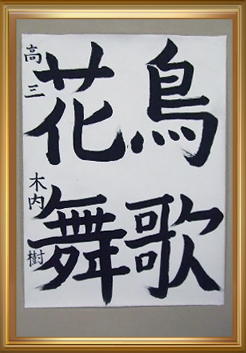 鳥歌
花舞
高三 木内 樹